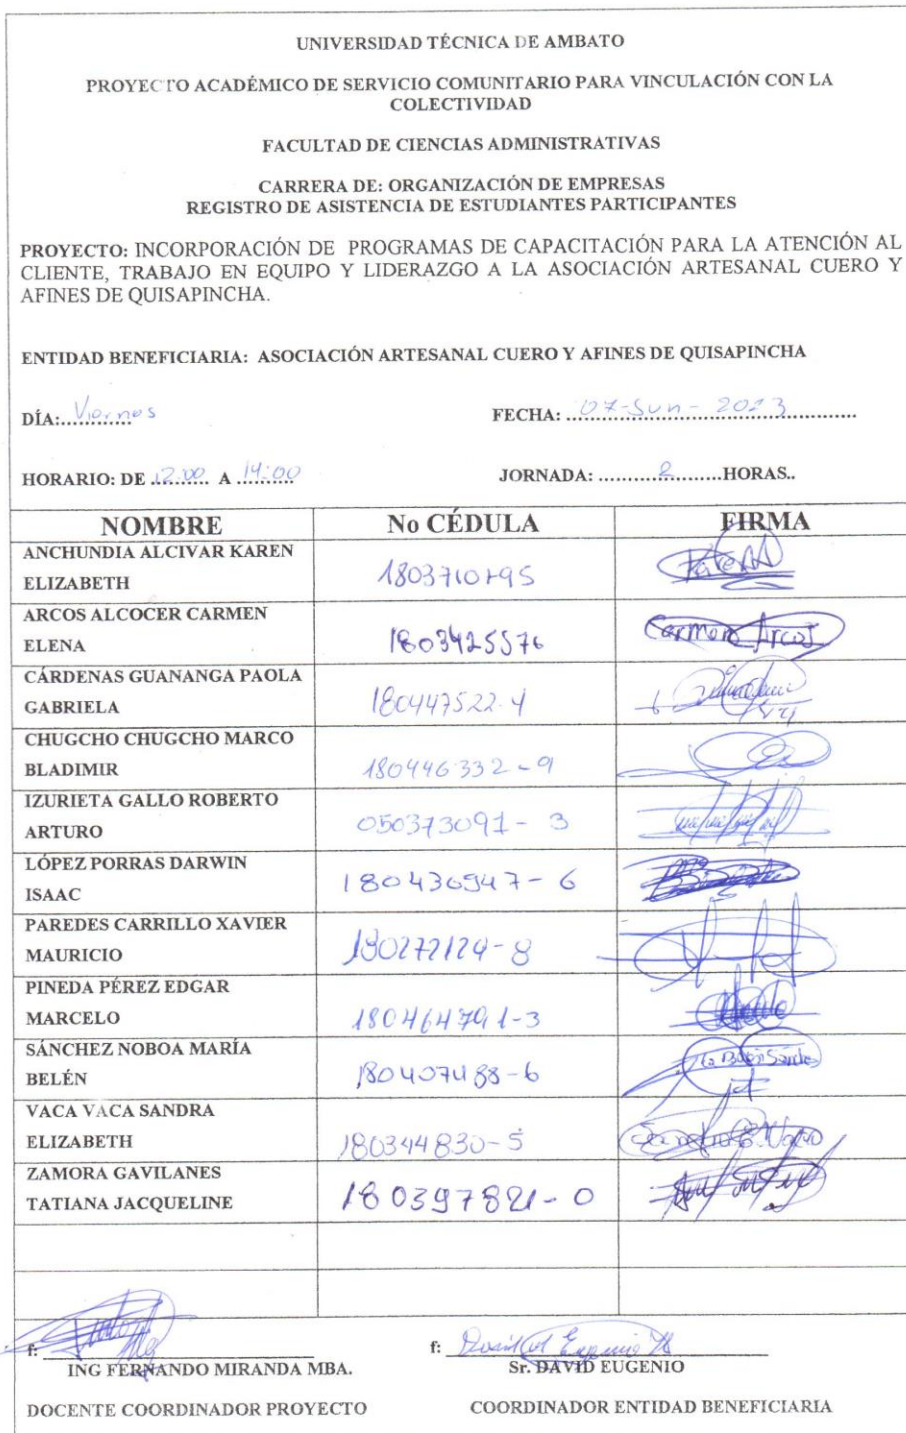 UNIVERSIDAD TÉCNICA DE AMBATO
PROYECTO ACADÉMICO DE SERVICIO COMUNITARIO PARA VINCULACIÓN CON LA
COLECTIVIDAD
FACULTAD DE CIENCIAS ADMINISTRATIVAS
CARRERA DE: ORGANIZACIÓN DE EMPRESAS
REGISTRO DE ASISTENCIA DE ESTUDIANTES PARTICIPANTES
PROYECTO: INCORPORACIÓN DE PROGRAMAS DE CAPACITACIÓN PARA LA ATENCIÓN AL
CLIENTE, TRABAJO EN EQUIPO Y LIDERAZGO A LA ASOCIACIÓN ARTESANAL CUERO Y
AFINES DE QUISAPINCHA.
ENTIDAD BENEFICIARIA: ASOCIACIÓN ARTESANAL CUERO Y AFINES DE QUISAPINCHA
DÍA: Viernes FECHA: 07-Jun-2013
HORARIO: DE 12:00 A 14:00 JORNADA: 2 HORAS..
NOMBRE No CÉDULA FIRMA
ANCHUNDIA ALCIVAR KAREN
ELIZABETH Karen
ARCOS ALCOCER CARMEN
ELENA 1803425576 Carmen Arcos
CÁRDENAS GUANANGA PAOLA
GABRIELA 180447522-4
CHUGCHO CHUGCHO MARCO
BLADIMIR 180446332-9
IZURIETA GALLO ROBERTO
ARTURO 050373091-3
LÓPEZ PORRAS DARWIN
ISAAC 180430947-6
PAREDES CARRILLO XAVIER
MAURICIO 180272124-8
PINEDA PÉREZ EDGAR
MARCELO 180464791-3
SÁNCHEZ NOBOA MARÍA
BELÉN 180407488-6
VACA VACA SANDRA
ELIZABETH 180344830-5
ZAMORA GAVILANES
TATIANA JACQUELINE 180397821-0
f: f: David Eugenio
ING FERNANDO MIRANDA MBA. Sr. DAVID EUGENIO
DOCENTE COORDINADOR PROYECTO COORDINADOR ENTIDAD BENEFICIARIA